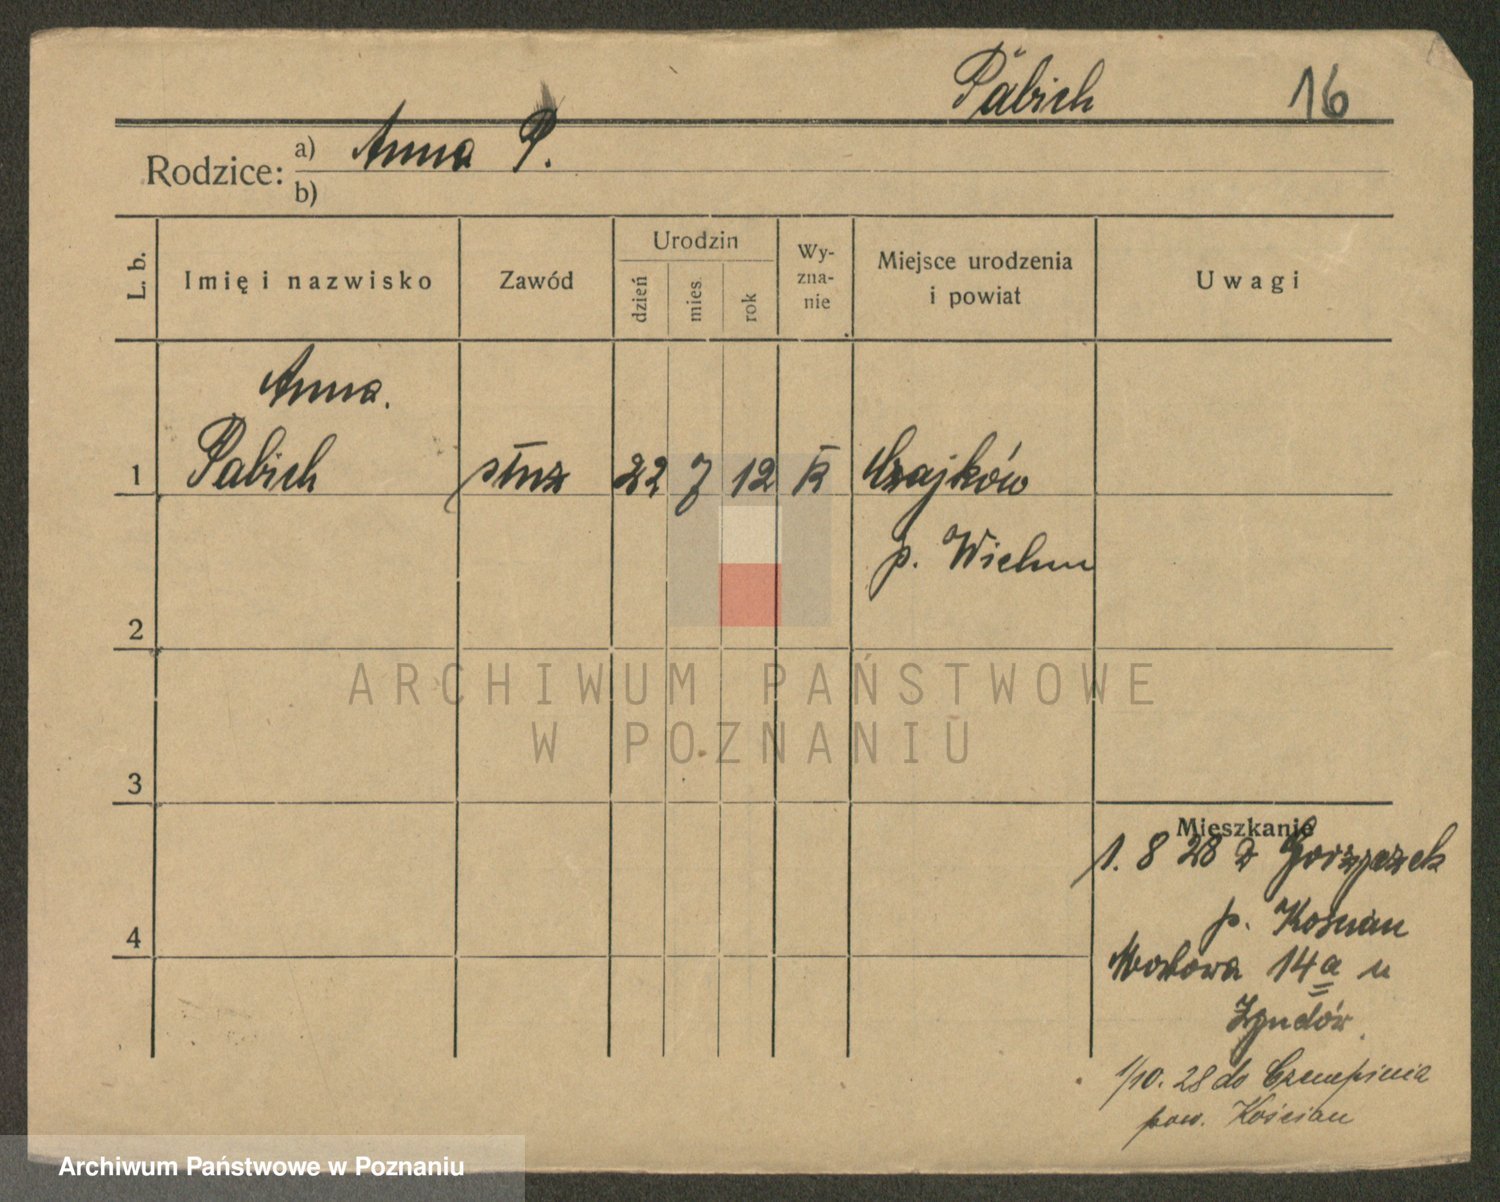 Pabich 16
Rodzice: a) Anna P.
b)
L. b. Imię i nazwisko Zawód Urodzin dzień mies. rok Wy-zna-nie Miejsce urodzenia i powiat Uwagi
Anna.
1 Pabich służ 22 7 12 K Czajków
p. Wieluń
2
ARCHIWUM PAŃSTWOWE
W POZNANIU
3
Mieszkanie
1. 8 28 z
p. Kościan
4
Mostowa 14a u
1/10. 28 do Czempinia
pow. Kościan
Archiwum Państwowe w Poznaniu